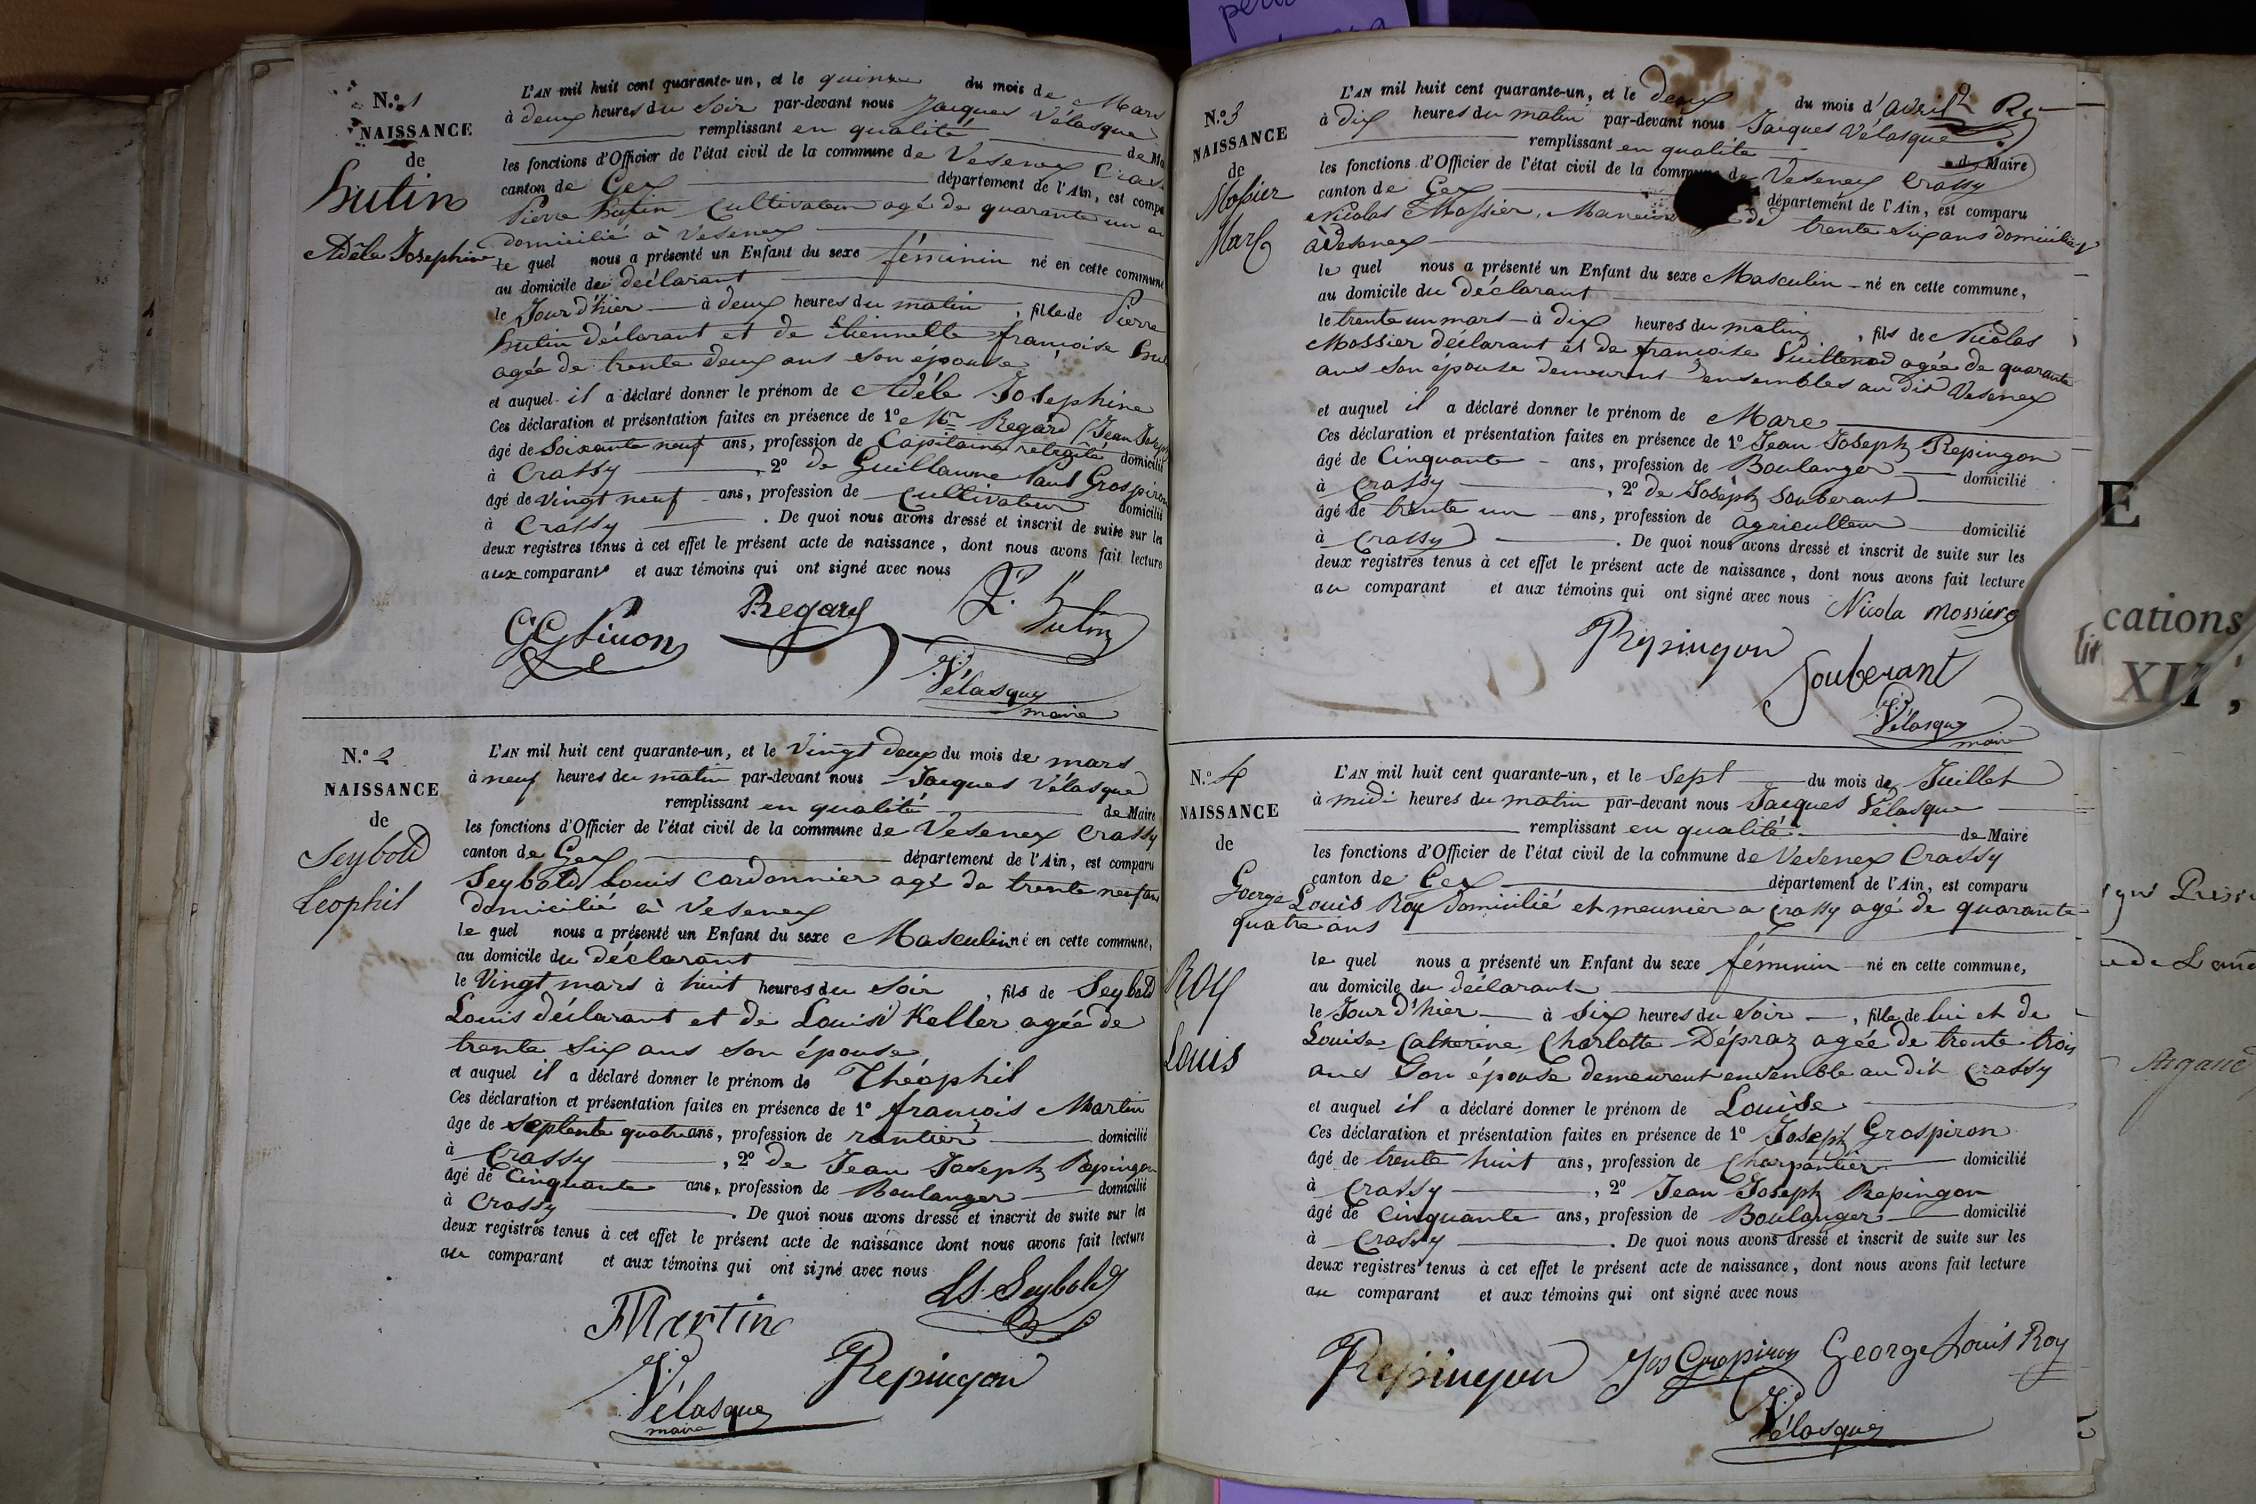 N.º 1
NAISSANCE
de
hutin
Adèle Josephine
L'AN mil huit cent quarante-un, et le quinze du mois de Mars
à deux heures du soir par-devant nous Jacques Vélasque
remplissant en qualité de Ma
les fonctions d'Officier de l'état civil de la commune de Vesenex Cras
canton de Gex département de l'Ain, est compa
Pierre hutin Cultivateur agé de quarante un an
domicilié à Vesenex
le quel nous a présenté un Enfant du sexe féminin né en cette commune
au domicile du déclarant
le Jour d'hier à deux heures du matin, fille de Pierre
hutin déclarant et de Etiennette françoise
agée de trente deux ans son épouse
et auquel il a déclaré donner le prénom de Adèle Josephine
Ces déclaration et présentation faites en présence de 1º Mr Regard (Jean Joseph
âgé de Soixante neuf ans, profession de Capitaine retraité domicilié
à Crassy, 2º de Guillaume Paul Grospiron
âgé de vingt neuf ans, profession de Cultivateur domicilié
à Crassy. De quoi nous avons dressé et inscrit de suite sur les
deux registres tenus à cet effet le présent acte de naissance, dont nous avons fait lecture
aux comparant et aux témoins qui ont signé avec nous
Regard
Vélasque
maire
N.º 2
NAISSANCE
de
Seybold
Léophil
L'AN mil huit cent quarante-un, et le vingt deux du mois de mars
à neuf heures du matin par-devant nous Jacques Vélasque
remplissant en qualité de Maire
les fonctions d'Officier de l'état civil de la commune de Vesenex Crassy
canton de Gex département de l'Ain, est comparu
Seybold Louis Cordonnier agé de trente neuf ans
domicilié à Vesenex
le quel nous a présenté un Enfant du sexe Masculin né en cette commune,
au domicile du déclarant
le Vingt mars à huit heures du soir, fils de Seybold
Louis déclarant et de Louise Keller agée de
trente six ans son épouse
et auquel il a déclaré donner le prénom de Théophil
Ces déclaration et présentation faites en présence de 1º françois Martin
âge de septente quatre ans, profession de rantier domicilié
à Crassy, 2º de Jean Joseph Repingon
âgé de Cinquante ans, profession de Boulanger domicilié
à Crassy. De quoi nous avons dressé et inscrit de suite sur les
deux registres tenus à cet effet le présent acte de naissance dont nous avons fait lecture
au comparant et aux témoins qui ont signé avec nous
Ls. Seybold
FMartin
Repingon
Vélasque
maire
N.º 3
NAISSANCE
de
Mossier
Marc
L'AN mil huit cent quarante-un, et le deux du mois d'avril
à dix heures du matin par-devant nous Jacques Vélasque
remplissant en qualité de Maire
les fonctions d'Officier de l'état civil de la commune de Vesenex Crassy
canton de Gex département de l'Ain, est comparu
Nicolas Mossier, de trente six ans domicilié
à Vesenex
le quel nous a présenté un Enfant du sexe Masculin né en cette commune,
au domicile du déclarant
le trente un mars à dix heures du matin, fils de Nicolas
Mossier déclarant et de françoise agée de quarante
ans son épouse demeurent ensembles au dit Vesenex
et auquel il a déclaré donner le prénom de Marc
Ces déclaration et présentation faites en présence de 1º Jean Joseph Repingon
âgé de Cinquante ans, profession de Boulanger domicilié
à Crassy, 2º de Joseph Souberant
âgé de trente un ans, profession de agriculteur domicilié
à Crassy. De quoi nous avons dressé et inscrit de suite sur les
deux registres tenus à cet effet le présent acte de naissance, dont nous avons fait lecture
au comparant et aux témoins qui ont signé avec nous
Nicola Mossier
Repingon
Souberant
Vélasque
maire
N.º 4
NAISSANCE
de
Roy
Louis
L'AN mil huit cent quarante-un, et le sept du mois de Juillet
à midi heures du matin par-devant nous Jacques Vélasque
remplissant en qualité de Maire
les fonctions d'Officier de l'état civil de la commune de Vesenex Crassy
canton de Gex département de l'Ain, est comparu
Goerge Louis Roy domicilié et meunier a Crassy agé de quarante
quatre ans
le quel nous a présenté un Enfant du sexe féminin né en cette commune,
au domicile du déclarant
le Jour d'hier à six heures du soir, fille de lui et de
Louise Catherine Charlotte Dépraz agée de trente trois
ans son épouse demeurent ensemble au dit Crassy
et auquel il a déclaré donner le prénom de Louise
Ces déclaration et présentation faites en présence de 1º Joseph Grospiron
âgé de trente huit ans, profession de Charpantier domicilié
à Crassy, 2º Jean Joseph Repingon
âgé de Cinquante ans, profession de Boulanger domicilié
à Crassy. De quoi nous avons dressé et inscrit de suite sur les
deux registres tenus à cet effet le présent acte de naissance, dont nous avons fait lecture
au comparant et aux témoins qui ont signé avec nous
Repingon Jos Grospiron George Louis Roy
Vélasque
E
cations
XII,